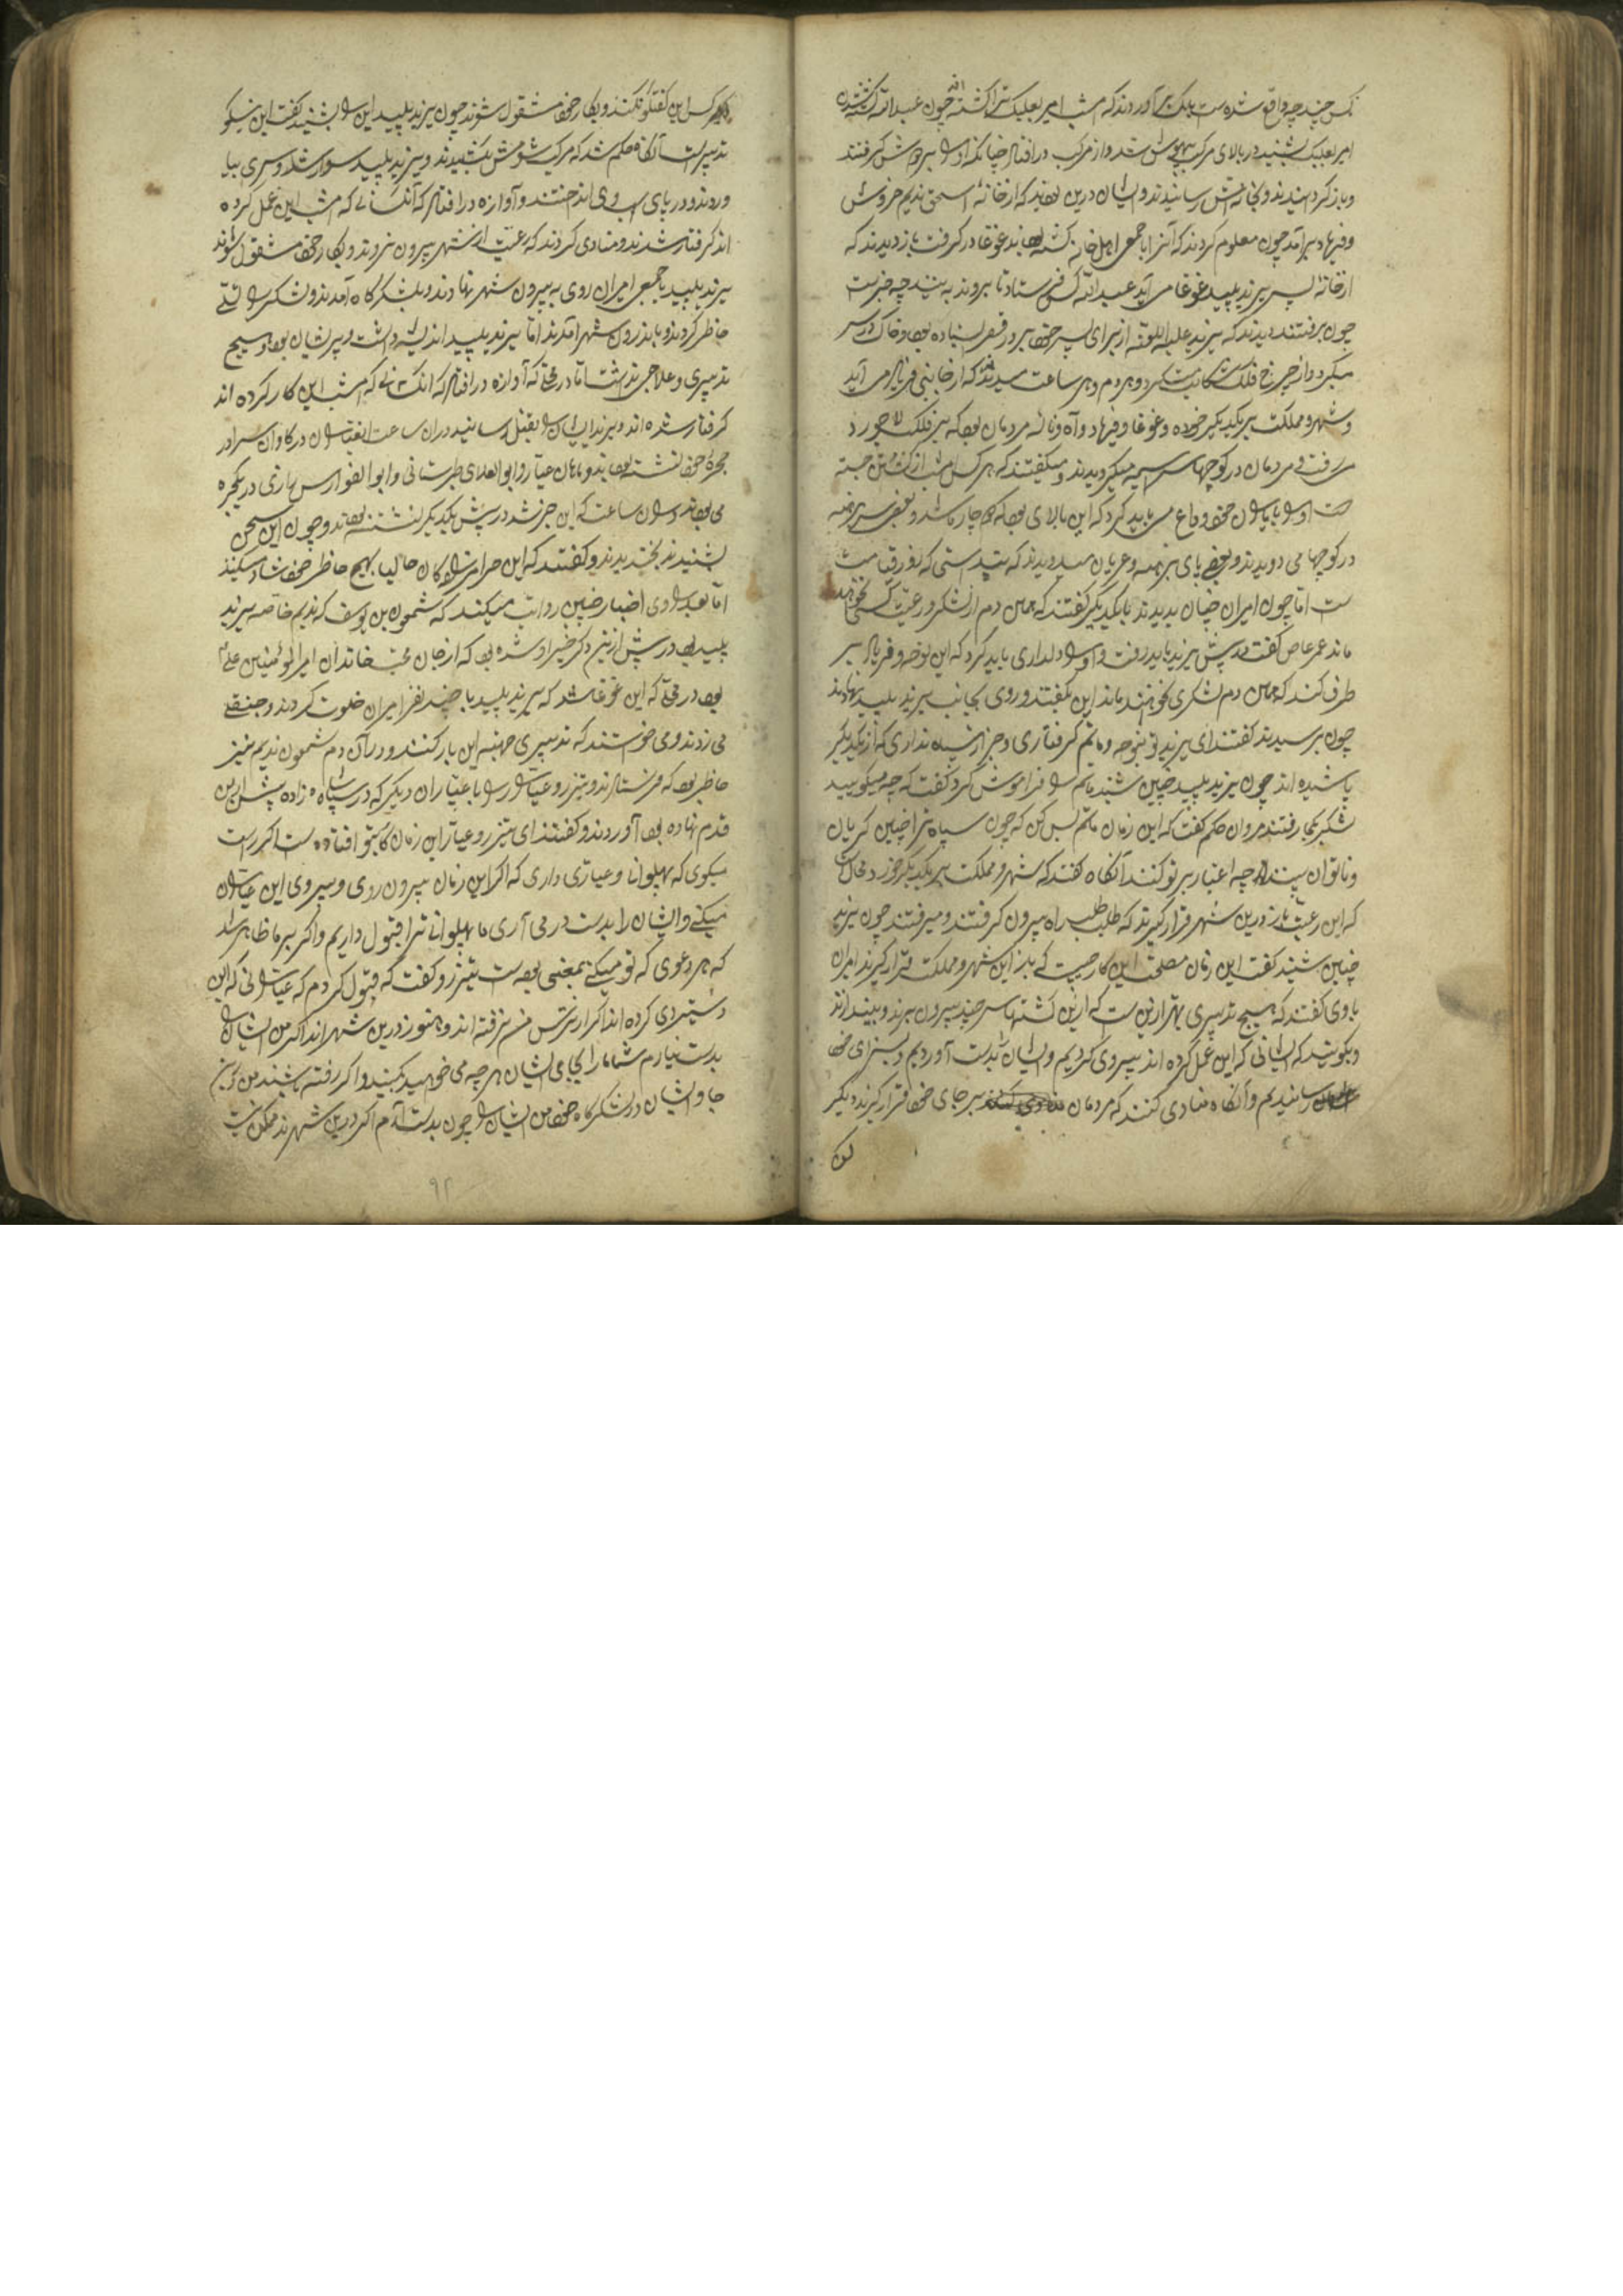 کس چند چه واقع شده است یک خبر آوردند که امشب امیر بعلبک ترا کشته اند چون عبدالله کشتن
امیر بعلبک بشنید در بالای مرکب بیهوش شد و از مرکب در افتاد چنانکه او را بر دوش گرفتند
و باز گردانیدند و بخانه اش رسانیدند و ایشان درین بودند که از خانه اسحق ندیم خروش
و فریاد برآمد چون معلوم کردند که آنرا با جمعی اهل خانه کشته بودند غوغا در گرفت باز دیدند که
از خانه پسر یزید پلید غوغا می آید عبدالله کس فرستاد تا بروند به بینند چه خبرست
چون برفتند دیدند که یزید علیه اللعنه از برای پسر خود بر در قصر ایستاده بود و خاک در سر
میکرد و از چرخ فلک شکایت میکرد و هر دم و هر ساعت میدیدند که از جانبی فریاد می آید
و شهر و مملکت بر یکدیگر خورده و غوغا و فریاد و آه و ناله مردمان بود که بر فلک لاجورد
میرفت و مردمان در کوچها سراسیمه میگردیدند و میگفتند که هر کس امشب از کشتن جسته
است او را با یاران خود وداع می باید کرد که این بلای بود که دچار ما شد و بعضی سر برهنه
در کوچها می دویدند و بعضی پای برهنه و عریان میدویدند که پنداشتی که روز قیامت
است اما چون امیران چنان بدیدند با یکدیگر گفتند که همین دم از لشکر و رعیت کسی نخواهد
ماند عمر عاص گفت در پیش یزید باید رفت و او را دلداری باید کرد که این نوحه و فریاد بر
طرف کند که همین دم لشکری نخواهند ماند این بگفتند و روی بجانب یزید پلید نهادند
چون برسیدند گفتند ای یزید تو بنوحه و ماتم گرفتاری و خبر از سپاه نداری که از یکدیگر
پاشیده اند چون یزید پلید چنین شنید ماتم را فراموش کرد و گفت که چه میگویید
لشکر بکجا رفتند مروان حکم گفت که این زمان ماتم بس کن که چون سپاه ترا چنین گریان
و ناتوان بینند چه اعتبار بر تو کنند آنگاه گفتند که شهر و مملکت بر یکدیگر خورد محال
که این رعیت باز درین شهر قرار گیرند که طبل طبل راه بیرون گرفتند و میرفتند چون یزید
چنین شنید گفت این زمان مصلحت این کار چیست که باز این شهر و مملکت قرار گیرند امیران
با وی گفتند که هیچ تدبیری بهتر ازین نیست که ازین کشتها سر چند بیرون برند و بیندازند
و بگویند که کسانی که این عمل کرده اند پیروی کردیم و ایشان را بدست آوردیم و بسزای خود
رسانیدیم و آنگاه منادی کنند که مردمان بر جای خود قرار گیرند دیگر
کس
دیگر کس این گفتگو نکنند و بکار خود مشغول شوند چون یزید پلید این را بشنید گفت این نیکو
تدبیرست آنگاه حکم شد که مرکب شومش بکشیدند و یزید پلید سوار شد و سری بیا
وردند و در پای اسب وی انداختند و آوازه در افتاد که آنکسانی که امشب این عمل کرده
اند گرفتار شدند و منادی کردند که رعیت از شهر بیرون نروند و بکار خود مشغول شوند
یزید پلید با جمعی امیران روی به بیرون شهر نهادند و بلشکرگاه آمدند و لشکر را تسلی
خاطر کردند و باندرون شهر آمدند اما یزید پلید اندیشه داشت و پریشان بود و هیچ
تدبیری و علاجی نداشت اما در محلی که آوازه در افتاد که آنکسانی که امشب این کار کرده اند
گرفتار شده اند و یزید ایشان را بقتل رسانید در آن ساعت آن عیاران در کاروان سرا در
حجرۀ خود نشسته بودند و ماهان عیار و ابوالعلای طبرستانی و ابوالفوارس رازی در یکحجره
می بودند و در آن ساعت که این خبر شد در پیش یکدیگر نشسته بودند و چون این سخن
بشنیدند بخندیدند و گفتند که این حرامزادگان حالیا بهیچ خاطر خود شاد میکنند
اما بعد راوی اخبار چنین روایت میکند که شمعون بن یوسف که ندیم خاصه یزید
پلید بود در پیش ازین ذکر خیر او شده بود که از جان محب خاندان امیرالمؤمنین علی
بود در محلی که این غوغا شد که یزید پلید با چند نفر امیران خلوت کردند و جنقی
می زدند و می خواستند که تدبیری جهته این کار کنند و در آن دم شمعون ندیم نیز
حاضر بود که فرستادند و تیزرو عیار را با عیاران دیگر که در سپاه زاده پیش ازین
قدم نهاده بود آوردند و گفتند ای تیزرو عیار این زمان کار بتو افتاده است اگر راست
میگوی که پهلوانی و عیاری داری که اگر این زمان بیرون روی و پیروی این عیاران
میکنی و ایشان را بدست در می آری ما پهلوانی ترا قبول داریم و اگر بر ما ظاهر شد
که هر دعوی که تو میکنی بمعنی بوده است تیزرو گفت که قبول کردم که عیارانی که این
دستبردی کرده اند اگر از ترس من نرفته اند و هنوز درین شهر اند اگر من ایشان را
بدست نیارم شما مرا بجای ایشان هر چه می خواهید بکنید و اگر رفته باشند من از این
جا و ایشان در لشکرگاه خود من ایشان را چون بدست آرم اگر درین شهرند ممکن نیست
۹۲